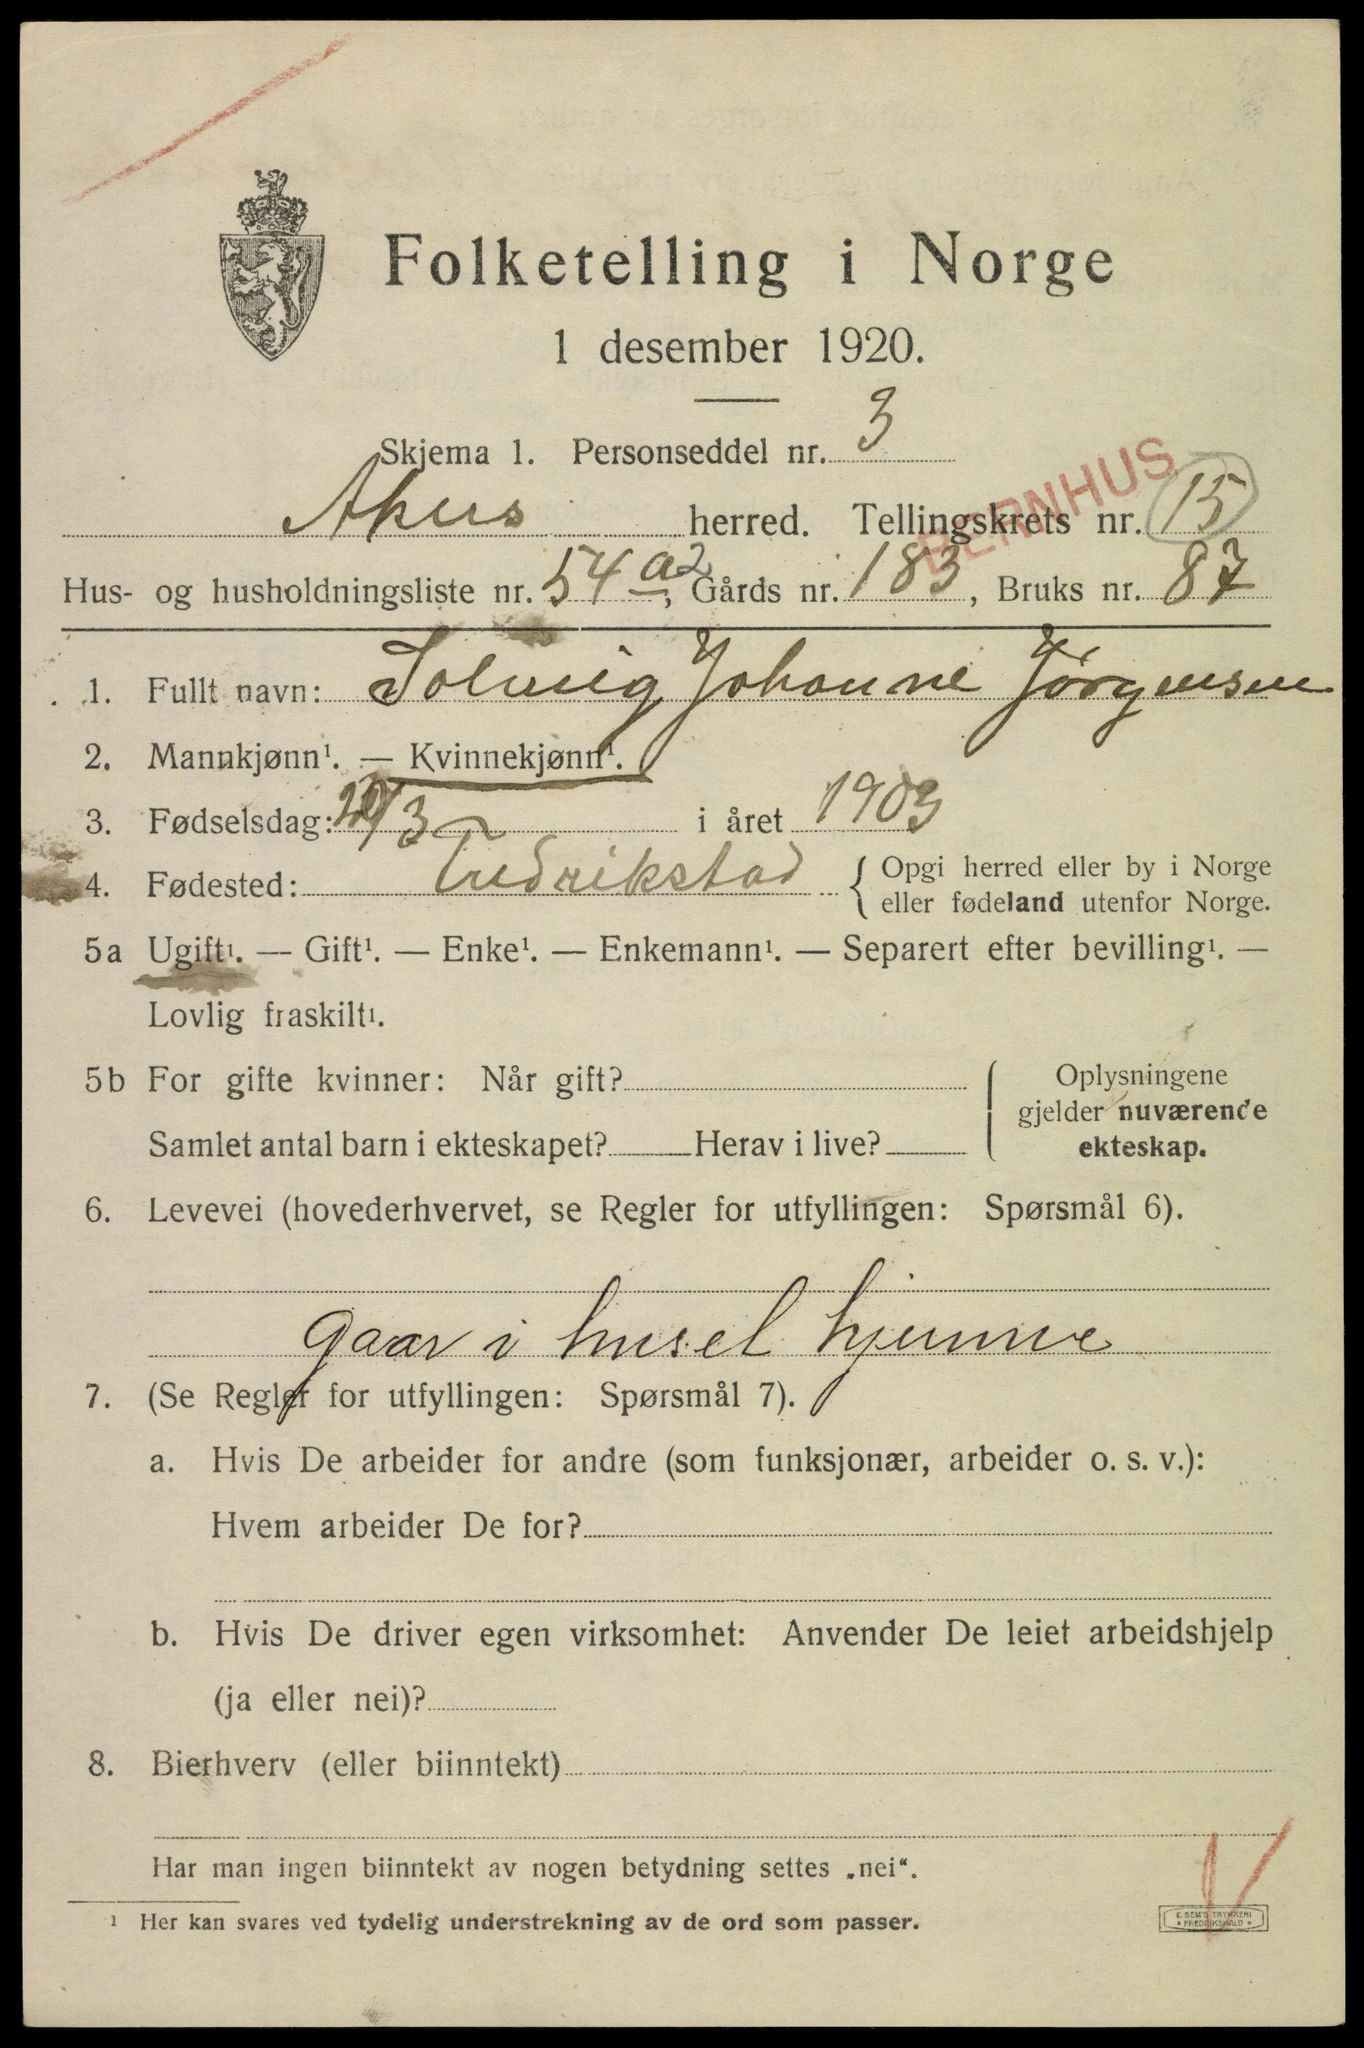 Folketelling i Norge
1 desember 1920.
Skjema 1. Personseddel nr. 3
Akus herred. Tellingskrets nr. 15
BERNHUS
Hus- og husholdningsliste nr. 54 a2, Gårds nr. 183, Bruks nr. 87
1. Fullt navn: Solveig Johanne Jörgensen
2. Mannkjønn¹. — Kvinnekjønn¹.
3. Fødselsdag: 20/3 i året 1903
4. Fødested: Fredrikstad { Opgi herred eller by i Norge
eller fødeland utenfor Norge.
5a Ugift¹. — Gift¹. — Enke¹. — Enkemann¹. — Separert efter bevilling¹. —
Lovlig fraskilt¹.
5b For gifte kvinner: Når gift?
Samlet antal barn i ekteskapet? Herav i live?
Oplysningene
gjelder nuværende
ekteskap.
6. Levevei (hovederhvervet, se Regler for utfyllingen: Spørsmål 6).
Gaar i huset hjemme
7. (Se Regler for utfyllingen: Spørsmål 7).
a. Hvis De arbeider for andre (som funksjonær, arbeider o. s. v.):
Hvem arbeider De for?
b. Hvis De driver egen virksomhet: Anvender De leiet arbeidshjelp
(ja eller nei)?
8. Bierhverv (eller biinntekt)
Har man ingen biinntekt av nogen betydning settes „nei“.
¹ Her kan svares ved tydelig understrekning av de ord som passer.
E. SEM'S TRYKKERI
* FREDRIKSHALD *